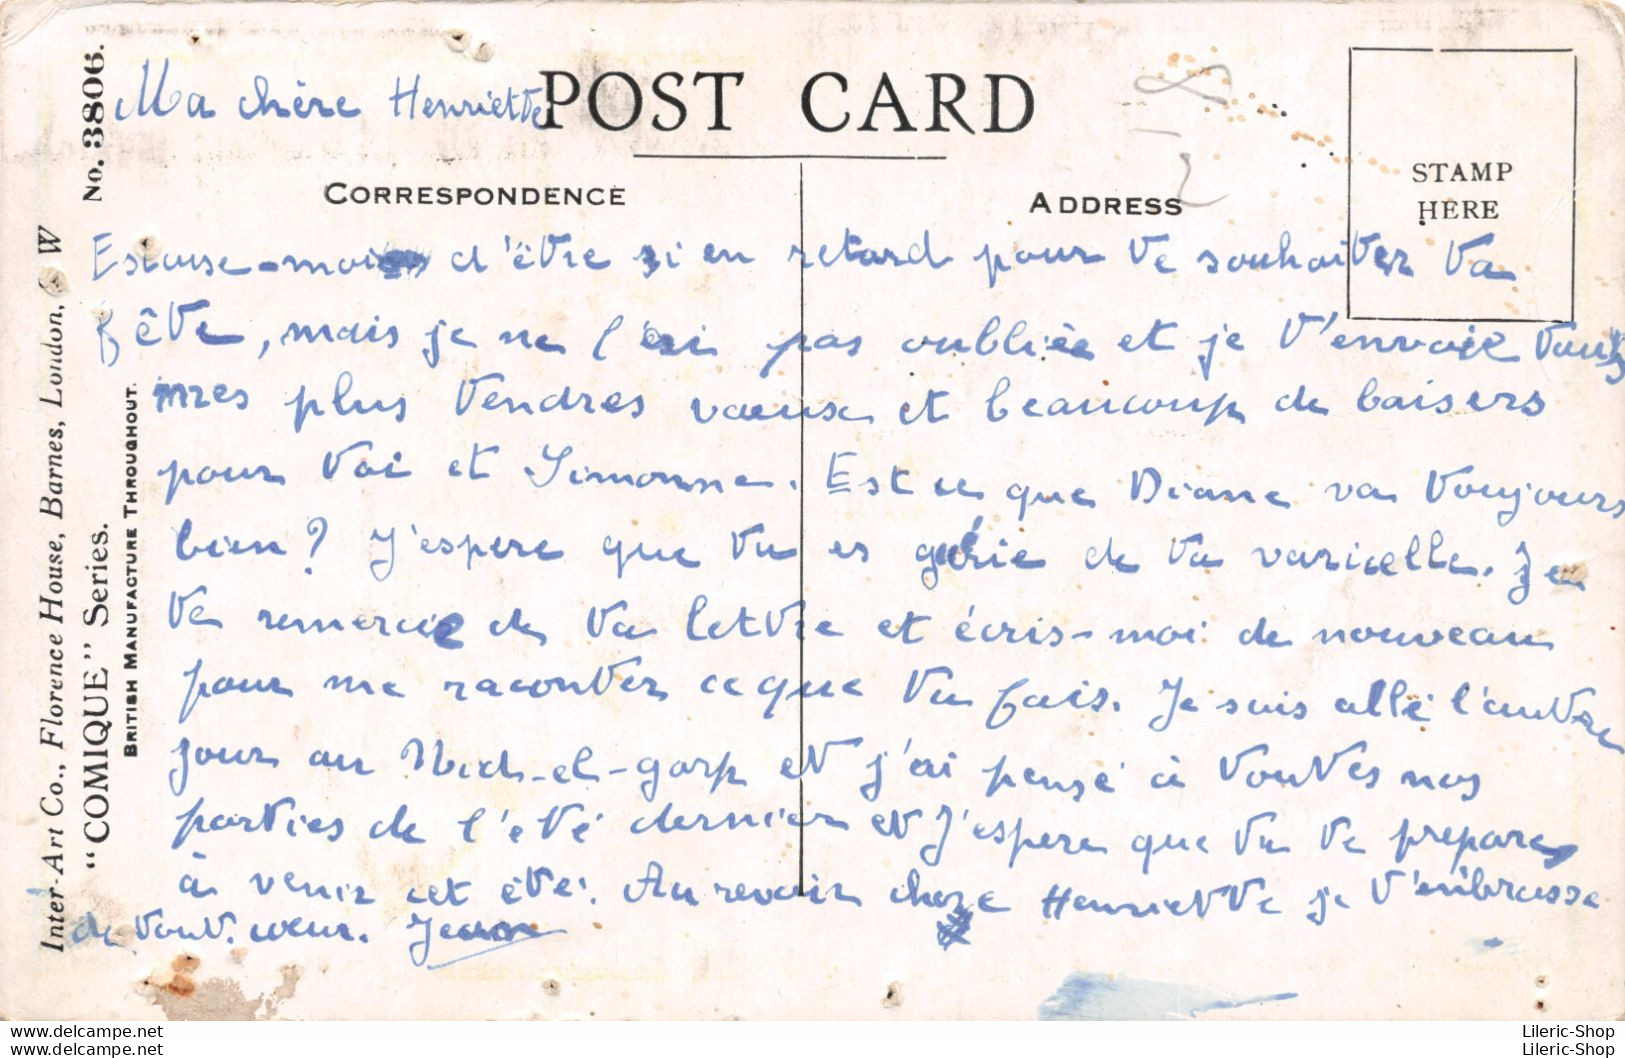 No. 3806.
Ma chère Henriette
POST CARD
CORRESPONDENCE
ADDRESS
STAMP
HERE
Escuse-moi d'être si en retard pour te souhaiter ta
fête, mais je ne l'ai pas oubliée et je t'envoie tous
mes plus tendres vœux et beaucoup de baisers
pour toi et Simonne. Est ce que Diane va toujours
bien? J'espere que tu es guérie de ta varicelle. Je
te remercie de ta lettre et écris-moi de nouveau
pour me raconter ce que tu fais. Je suis allé l'autre
jour au Nid-el-gorp et j'ai pensé à toutes nos
parties de l'eté dernier et j'espere que tu te prepares
à venir cet été. Au revoir chere Henriette je t'embrasse
de tout cœur. Jean
Inter-Art Co., Florence House, Barnes, London, S W
"COMIQUE" Series.
BRITISH MANUFACTURE THROUGHOUT.
www.delcampe.net
www.delcampe.net
Lileric-Shop
Lileric-Shop